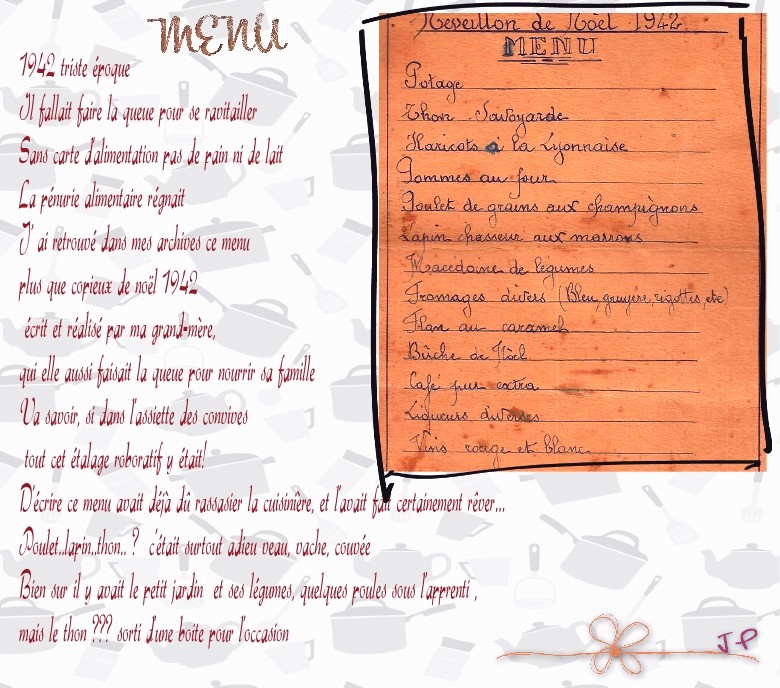 MENU
1942 triste époque
Il fallait faire la queue pour se ravitailler
Sans carte d'alimentation pas de pain ni de lait
La pénurie alimentaire régnait
J' ai retrouvé dans mes archives ce menu
plus que copieux de noël 1942
écrit et réalisé par ma grand-mère,
qui elle aussi faisait la queue pour nourrir sa famille
Va savoir, si dans l'assiette des convives
tout cet étalage roboratif y était!
D'écrire ce menu avait déjà dû rassasier la cuisinière, et l'avait fait certainement rêver...
Poulet..lapin..thon.. ? c'était surtout adieu veau, vache, couvée
Bien sur il y avait le petit jardin et ses légumes, quelques poules sous l'apprenti ,
mais le thon ??? sorti d'une boite pour l'occasion
Réveillon de Noèl 1942
MENU
Potage
Thon Savoyarde
Haricots à la Lyonnaise
Pommes au four
Poulet de grains aux champignons
Lapin chasseur aux marrons
Macédoine de légumes
Fromages divers (Bleu, gruyère, rigottes, etc)
Flan au caramel
Bûche de Noël
Café pur extra
Liqueurs diverses
Vins rouge et blanc
J-P